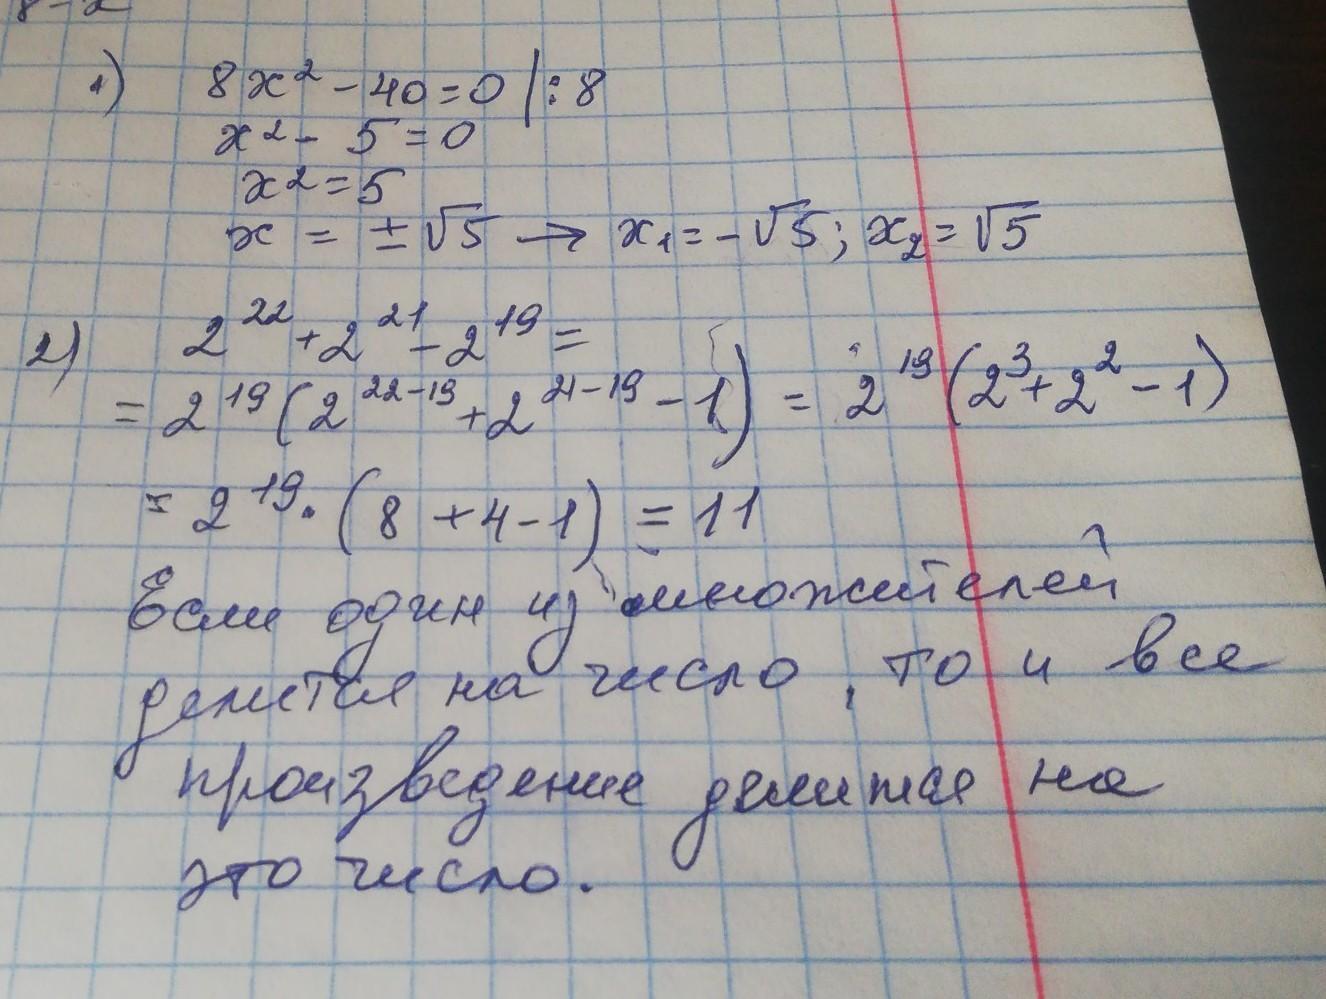 8-2
1) 8x² - 40 = 0 | : 8
x² - 5 = 0
x² = 5
x = ±√5 → x₁ = -√5; x₂ = √5
2) 2²² + 2²¹ - 2¹⁹ =
= 2¹⁹ (2²²⁻¹⁹ + 2²¹⁻¹⁹ - 1) = 2¹⁹ (2³ + 2² - 1)
= 2¹⁹ · (8 + 4 - 1) = 11
Если один из множителей
делится на число, то и все
произведение делится на
это число.